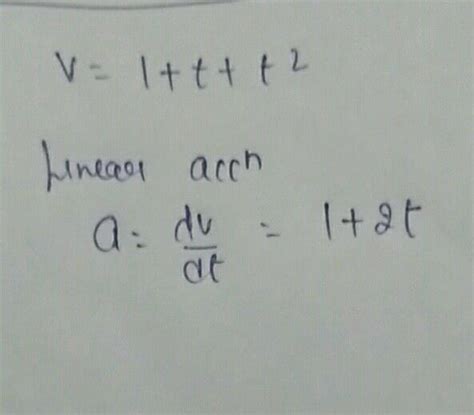 V = 1 + t + t²
Linear accn
a = dv/dt = 1 + 2t